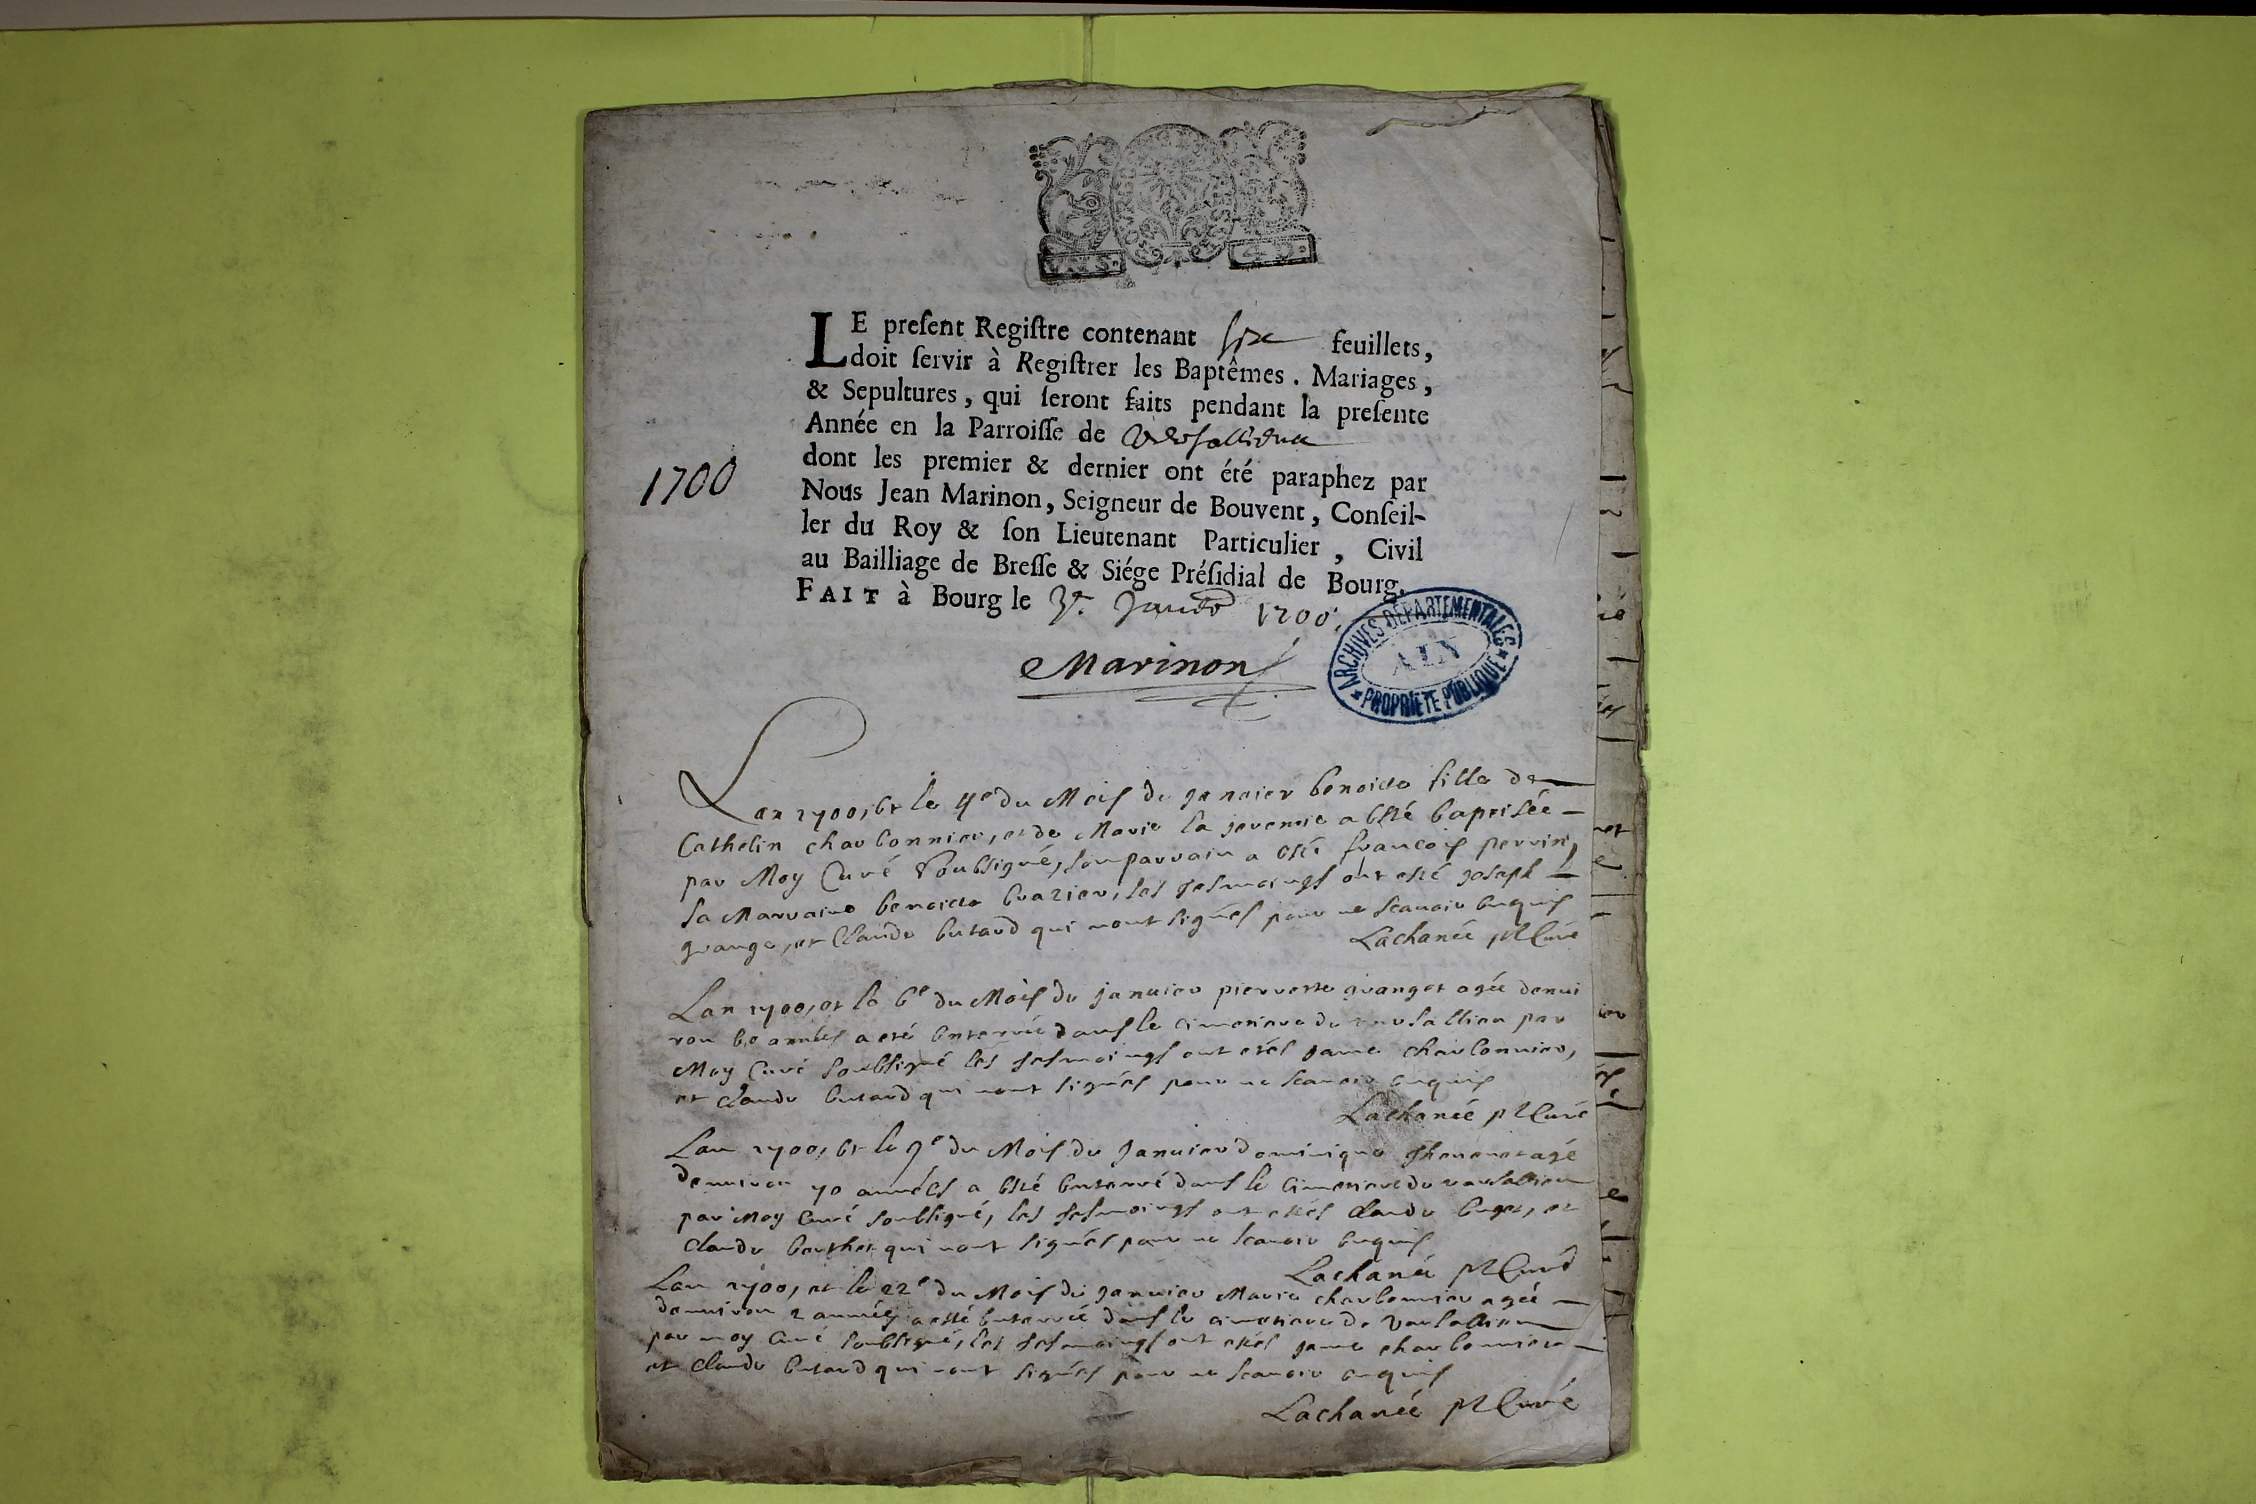 LE preſent Regiſtre contenant six feuillets,
doit ſervir à Regiſtrer les Baptêmes. Mariages,
& Sepultures, qui ſeront faits pendant la preſente
Année en la Parroiſſe de
1700
dont les premier & dernier ont été paraphez par
Nous Jean Marinon, Seigneur de Bouvent, Conſeil-
ler du Roy & ſon Lieutenant Particulier, Civil
au Bailliage de Breſſe & Siége Préſidial de Bourg.
FAIT à Bourg le 3e. 1700.
Marinon
ARCHIVES DEPARTEMENTALES
AIN
PROPRIETE PUBLIQUE
Lan 1700, et le 4e du Mois de janvier benoite fille de
Cathelin charbonnier, et de Marie la jevenie a esté baptisée
par Moy Curé soubsigné, son parrain a esté francois perrin,
sa Marraine benoite brazier, les tesmoings ont esté joseph
grange, et Claude butavd qui nont signés pour ne scavoir enquis
Lachanée ptre Curé
Lan 1700, et le 6e du Mois de janvier pierrette granget agée denvi
ron années a eté enterrée dans le cimetiere de versallieu par
Moy Curé soubsigné les tesmoings ont estés charbonnier,
et claude butavd qui nont signés pour ne scavoir enquis
Lachanée ptre Curé
Lan 1700, et le 9e du Mois de janvier dominique agé
denviron 70 années a esté enterré dans le cimetiere de versallieu
par Moy Curé soubsigné, les tesmoings ont estés claude buget, et
claude berthet qui nont signés pour ne scavoir enquis
Lachanée ptre Curé
Lan 1700, et le 22e du Mois de janvier Marie charbonnier agée
denviron 2 années a esté enterrée dans le cimetiere de versallieu
par moy Curé soubsigné, les tesmoings ont estés charbonnier
et claude butavd qui nont signés pour ne scavoir enquis
Lachanée ptre Curé